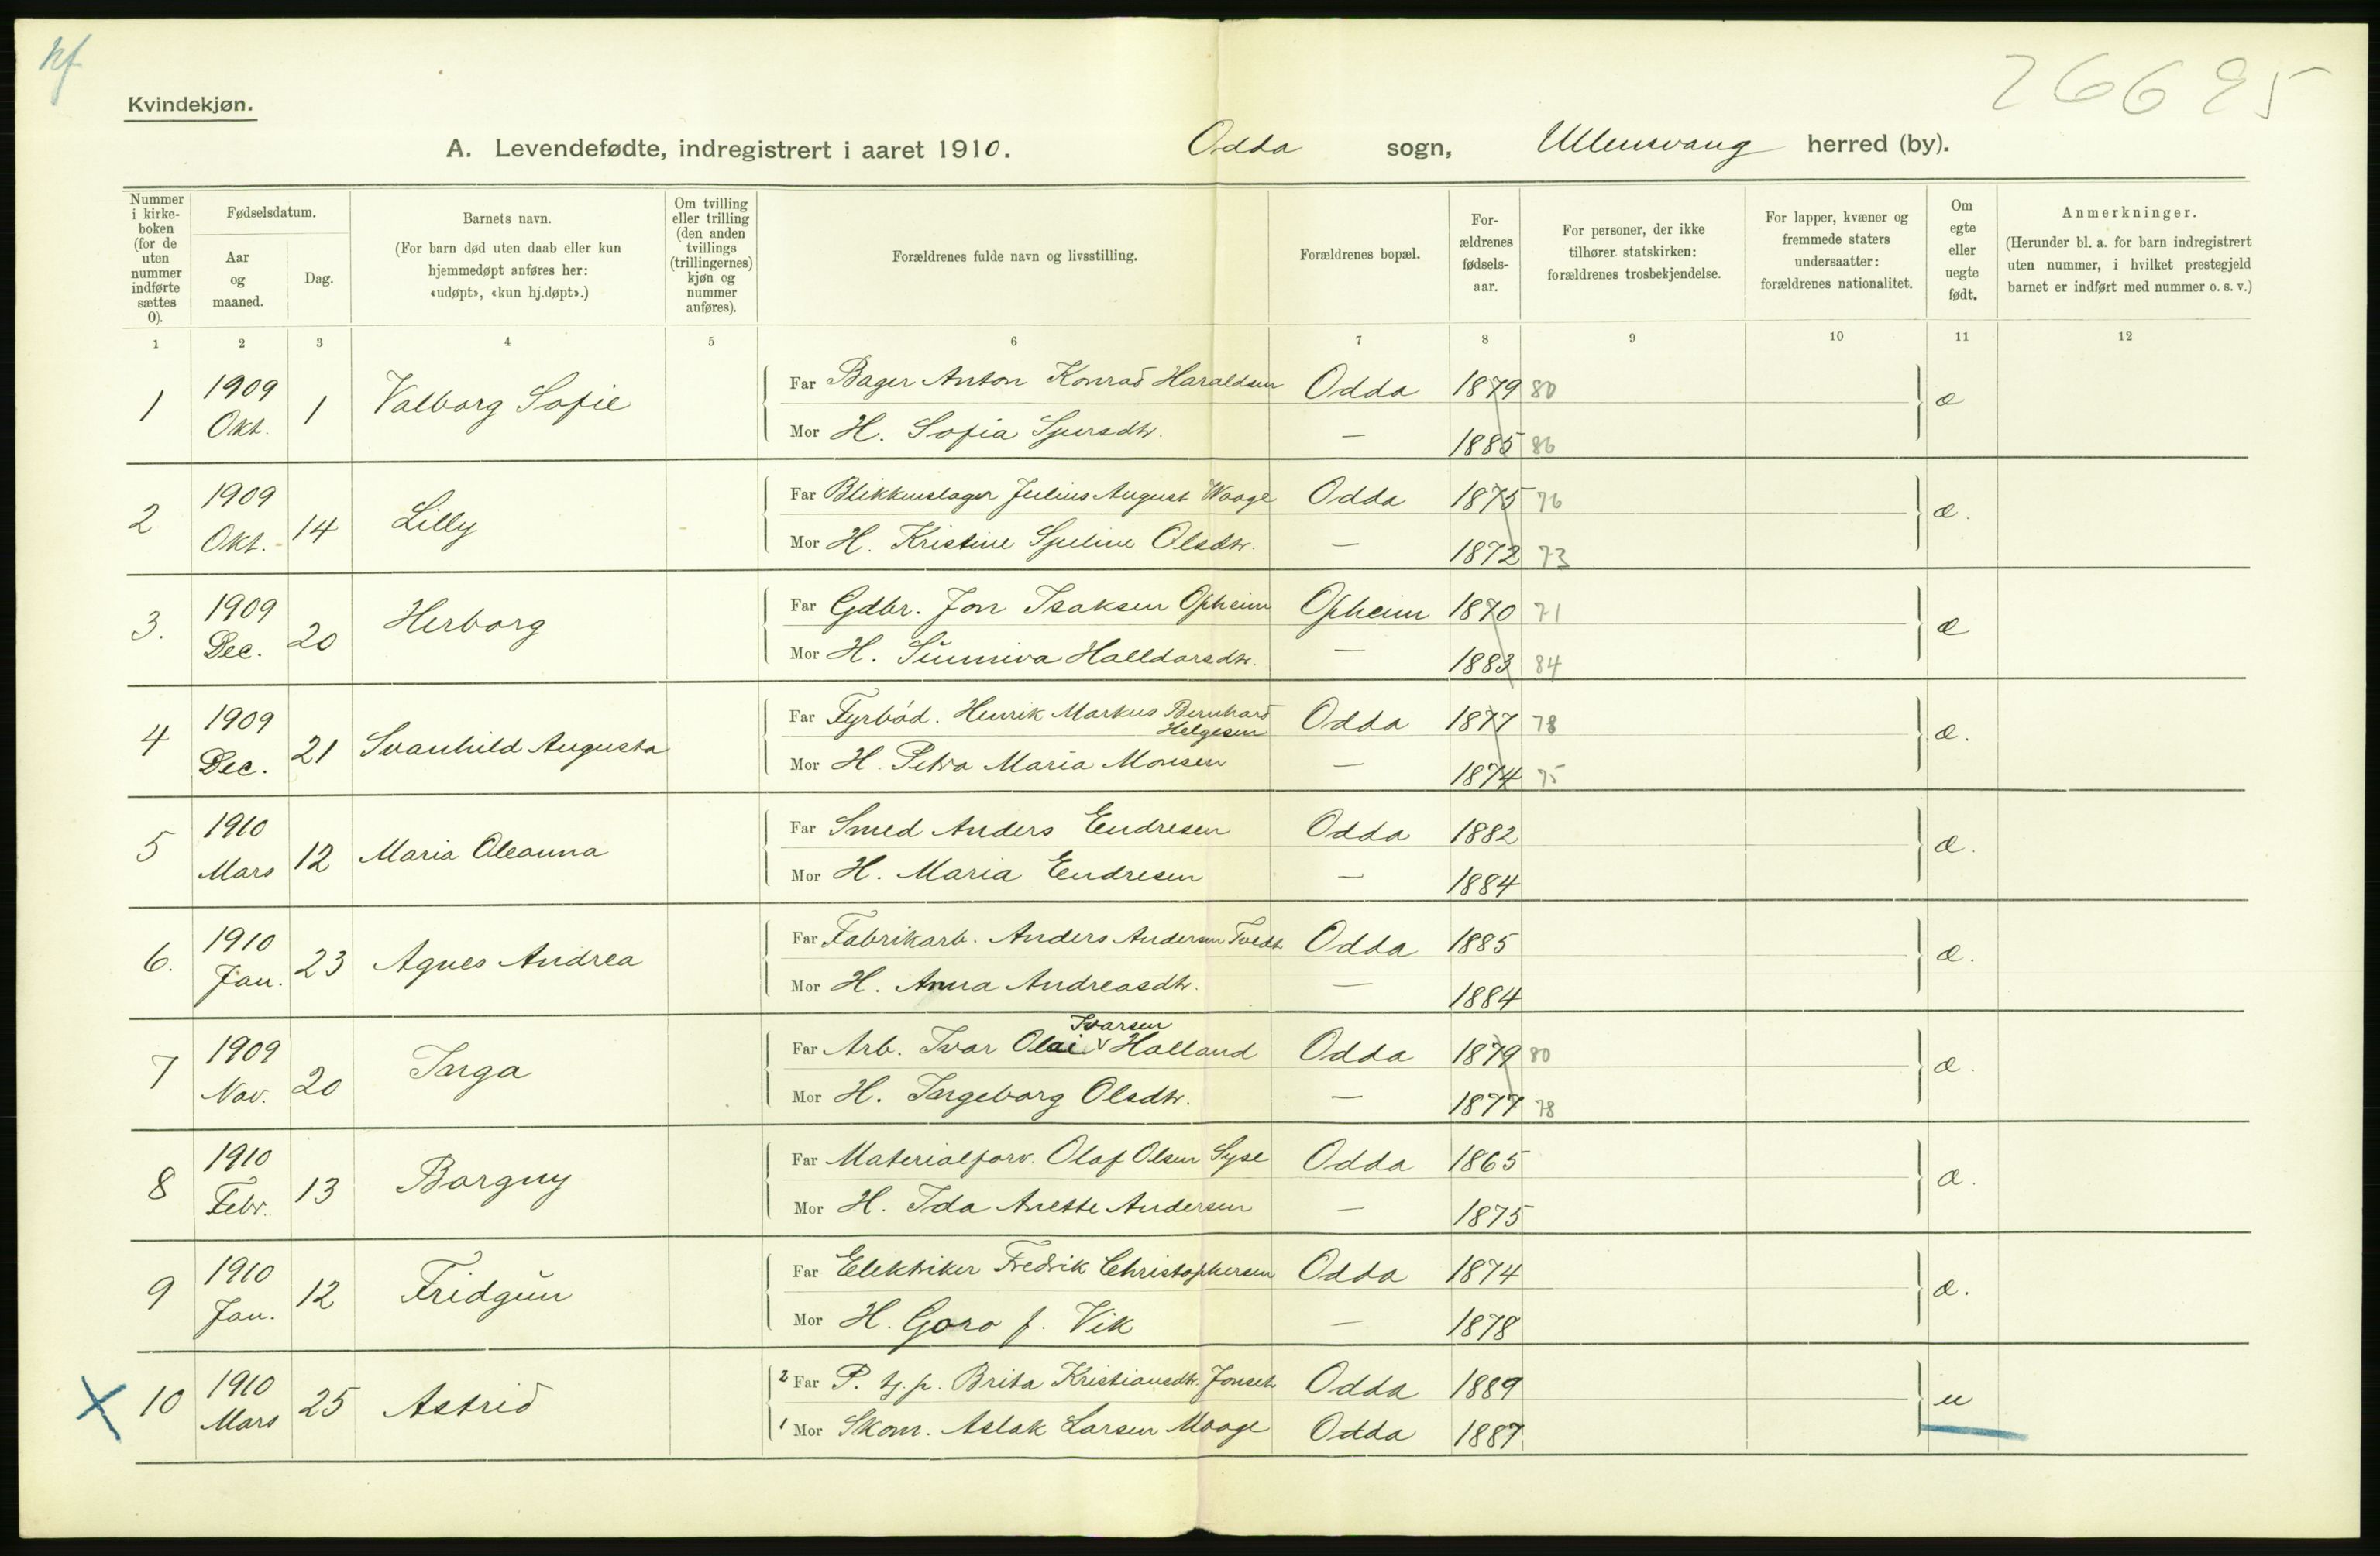 nf
26695
Kvindekjøn.
A. Levendefødte, indregistrert i aaret 1910. Odda sogn, Ullensvang herred (by).
Nummer i kirke-boken (for de uten nummer indførte sættes 0).
Fødselsdatum.
Aar og maaned.
Dag.
Barnets navn.
(For barn død uten daab eller kun hjemmedøpt anføres her: «udøpt», «kun hj.døpt».)
Om tvilling eller trilling (den anden tvillings (trillingernes) kjøn og nummer anføres).
Forældrenes fulde navn og livsstilling.
Forældrenes bopæl.
For-ældrenes fødsels-aar.
For personer, der ikke tilhører statskirken: forældrenes trosbekjendelse.
For lapper, kvæner og fremmede staters undersaatter: forældrenes nationalitet.
Om egte eller uegte født.
Anmerkninger.
(Herunder bl. a. for barn indregistrert uten nummer, i hvilket prestegjeld barnet er indført med nummer o. s. v.)
1 2 3 4 5 6 7 8 9 10 11 12
1 1909 Okt. 1 Valborg Sofie Far Bager Anton Konrad Haraldsen Odda 1879 80 æ
Mor H. Sofia Sjursdtr. — 1885 86
2 1909 Okt. 14 Lilly Far Blikkenslager Julius August Waage Odda 1875 76 æ.
Mor H. Kristine Olsdtr. — 1872 73
3. 1909 Dec. 20 Herborg Far Gdbr. Jon Isaksen Opheim Opheim 1870 71 æ
Mor H. Sunniva Halldorsdtr. — 1883 84
4 1909 Dec. 21 Svanhild Augusta Far Fyrbød. Henrik Markus Bernhard Helgesen Odda 1877 78 æ.
Mor H. Petra Maria Monsen — 1874 75
5 1910 Mars 12 Maria Oleanna Far Smed Anders Endresen Odda 1882 æ.
Mor H. Maria Endresen — 1884
6. 1910 Jan. 23 Agnes Andrea Far Fabrikarb. Anders Andersen Tvedt Odda 1885 æ.
Mor H. Anna Andreasdtr. — 1884
7 1909 Nov. 20 Inga Far Arb. Ivar Olai Ivarsen Halland Odda 1879 80 æ.
Mor H. Ingeborg Olsdtr. — 1877 78
8 1910 Febr. 13 Borgny Far Materialforv. Olaf Olsen Syse Odda 1865 æ.
Mor H. Ida Anette Andersen — 1875
9 1910 Jan. 12 Fridgun Far Elektriker Fredrik Christophersen Odda 1874 æ.
Mor H. Goro f. Vik — 1878
X 10 1910 Mars 25 Astrid 2 Far P. tj.p. Brita Kristiansdtr. Odda 1889 u
1 Mor Skom. Aslak Larsen Maage Odda 1887